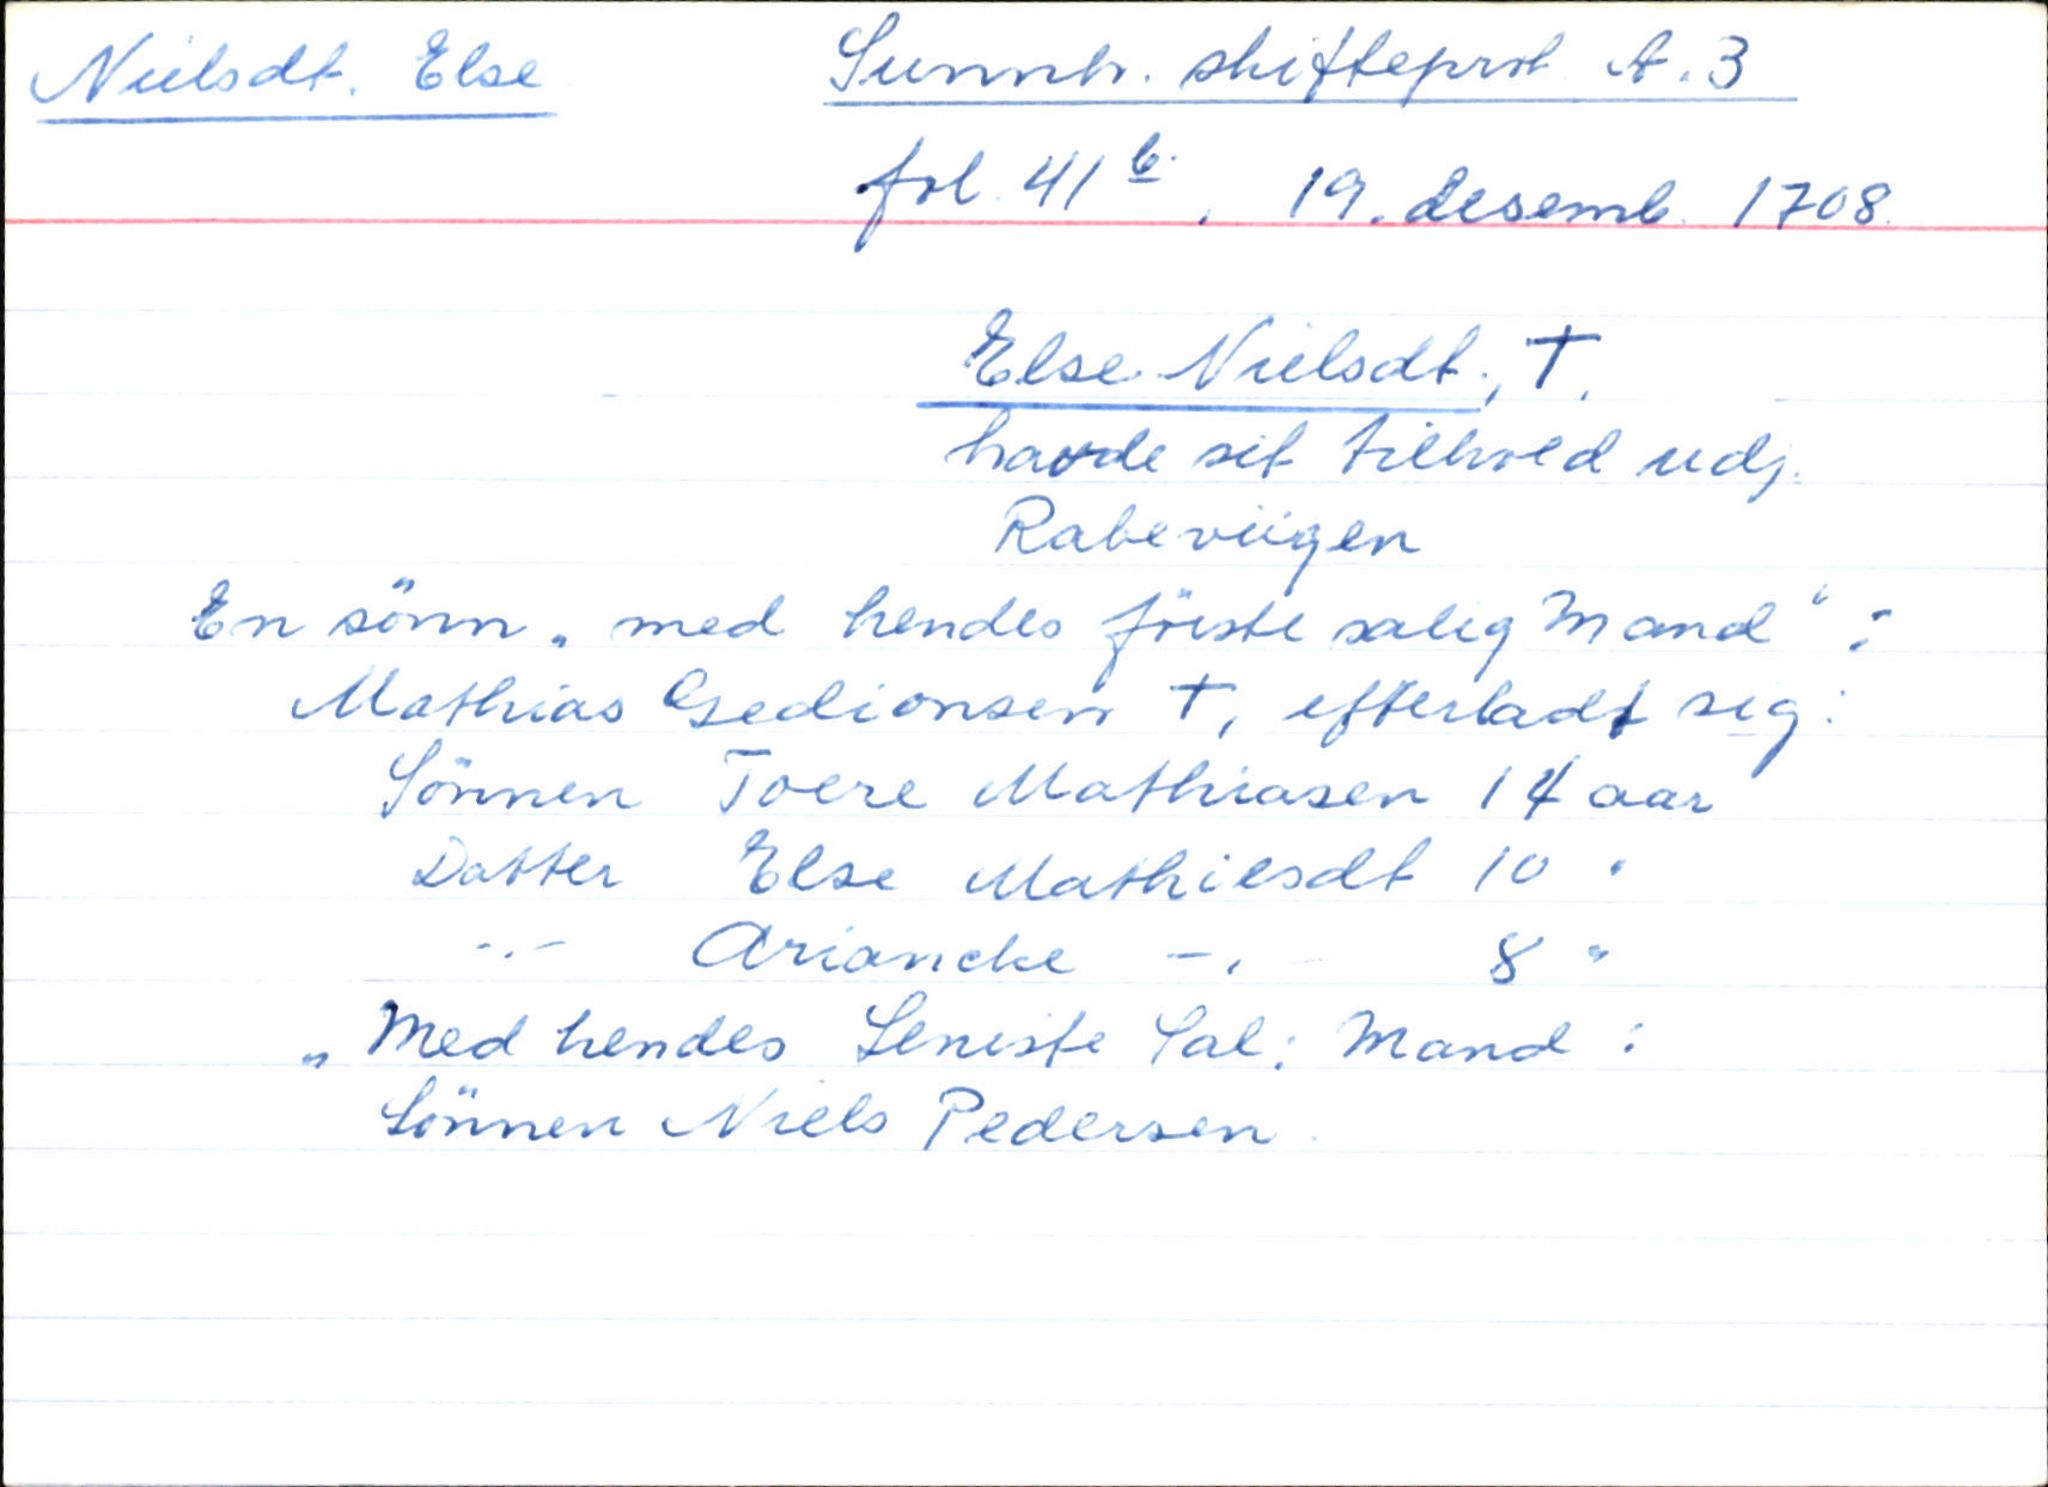 Nielsdt. Else
Sunnh. skifteprot A.3
fol. 41 b. , 19. desemb. 1708.
Else Nielsdt., †,
havde sit tilhold udj.
Rabeviigen
En sönn „ med hendes förste salig Mand “ :
Mathias Gedionsen †, efterladt sig :
Sönnen Toere Mathiasen 14 aar
Datter Else Mathiesdt 10 "
-„- Ariancke -„- 8 "
„ Med hendes Seniste Sal: Mand :
Sönnen Niels Pedersen.